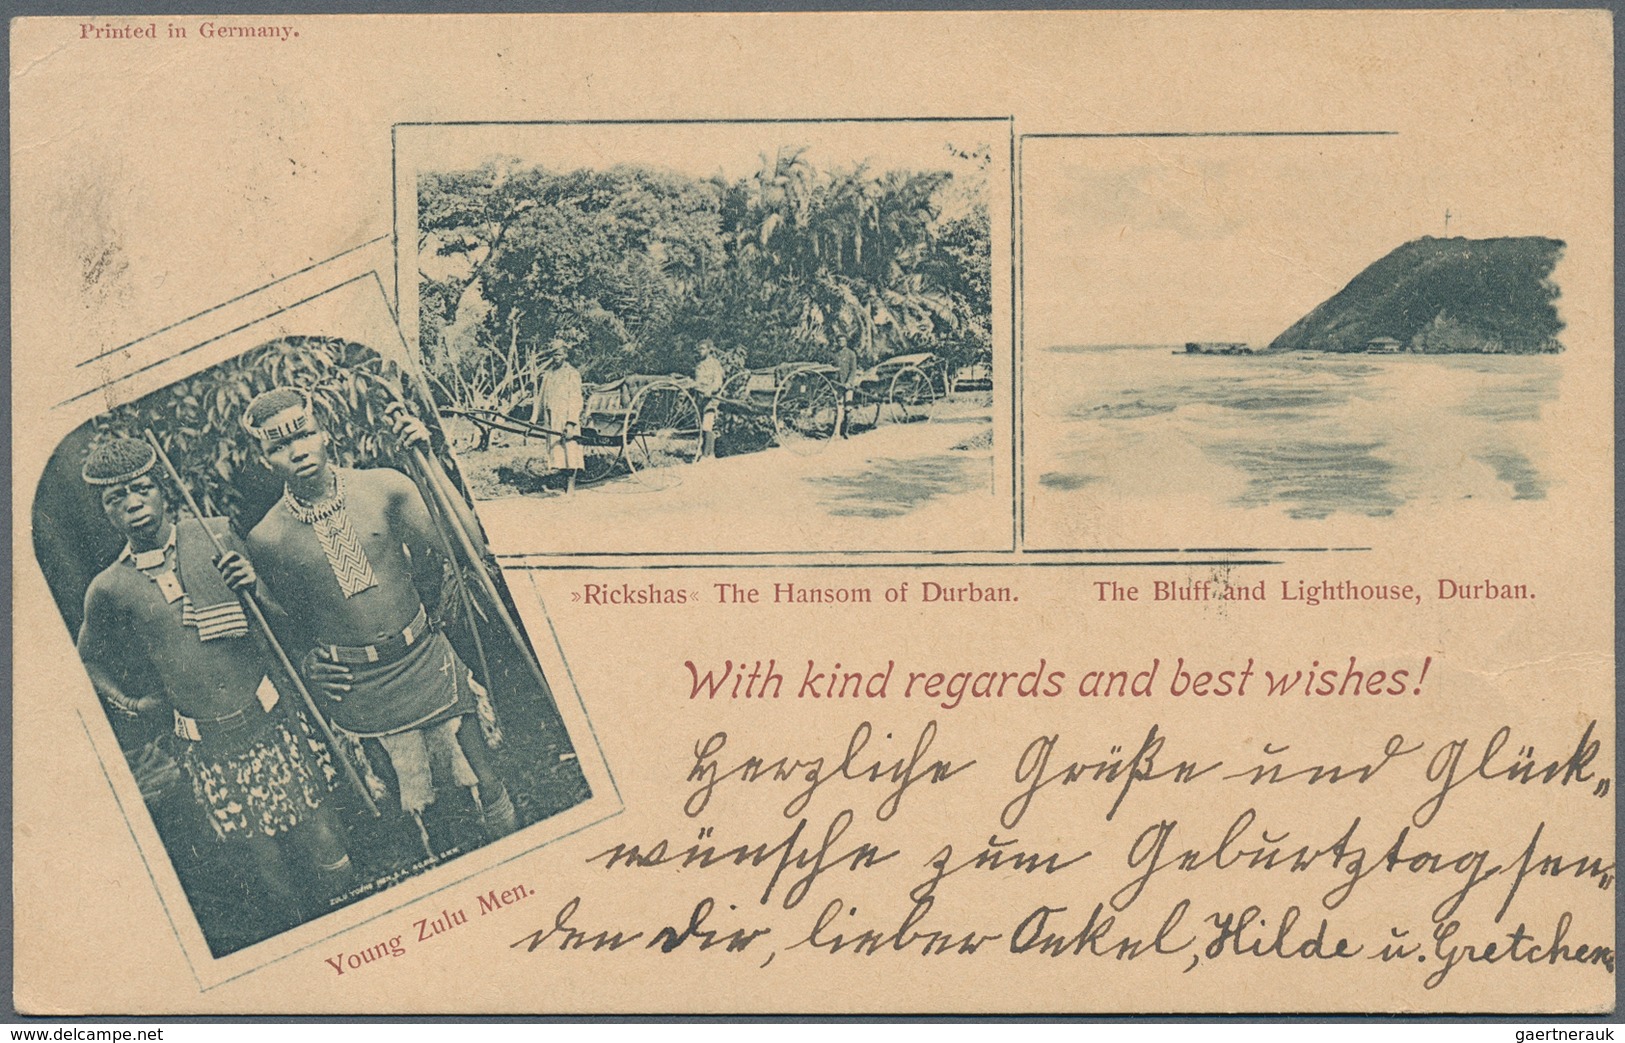 Printed in Germany.
»Rickshas« The Hansom of Durban.
The Bluff and Lighthouse, Durban.
With kind regards and best wishes!
Herzliche Grüße und Glück„
wünsche zum Geburtztag sen„
den Dir, lieber Onkel, Hilde u. Gretchen.
ZULU YOUNG MEN
Young Zulu Men.
www.delcampe.net
gaertnerauk